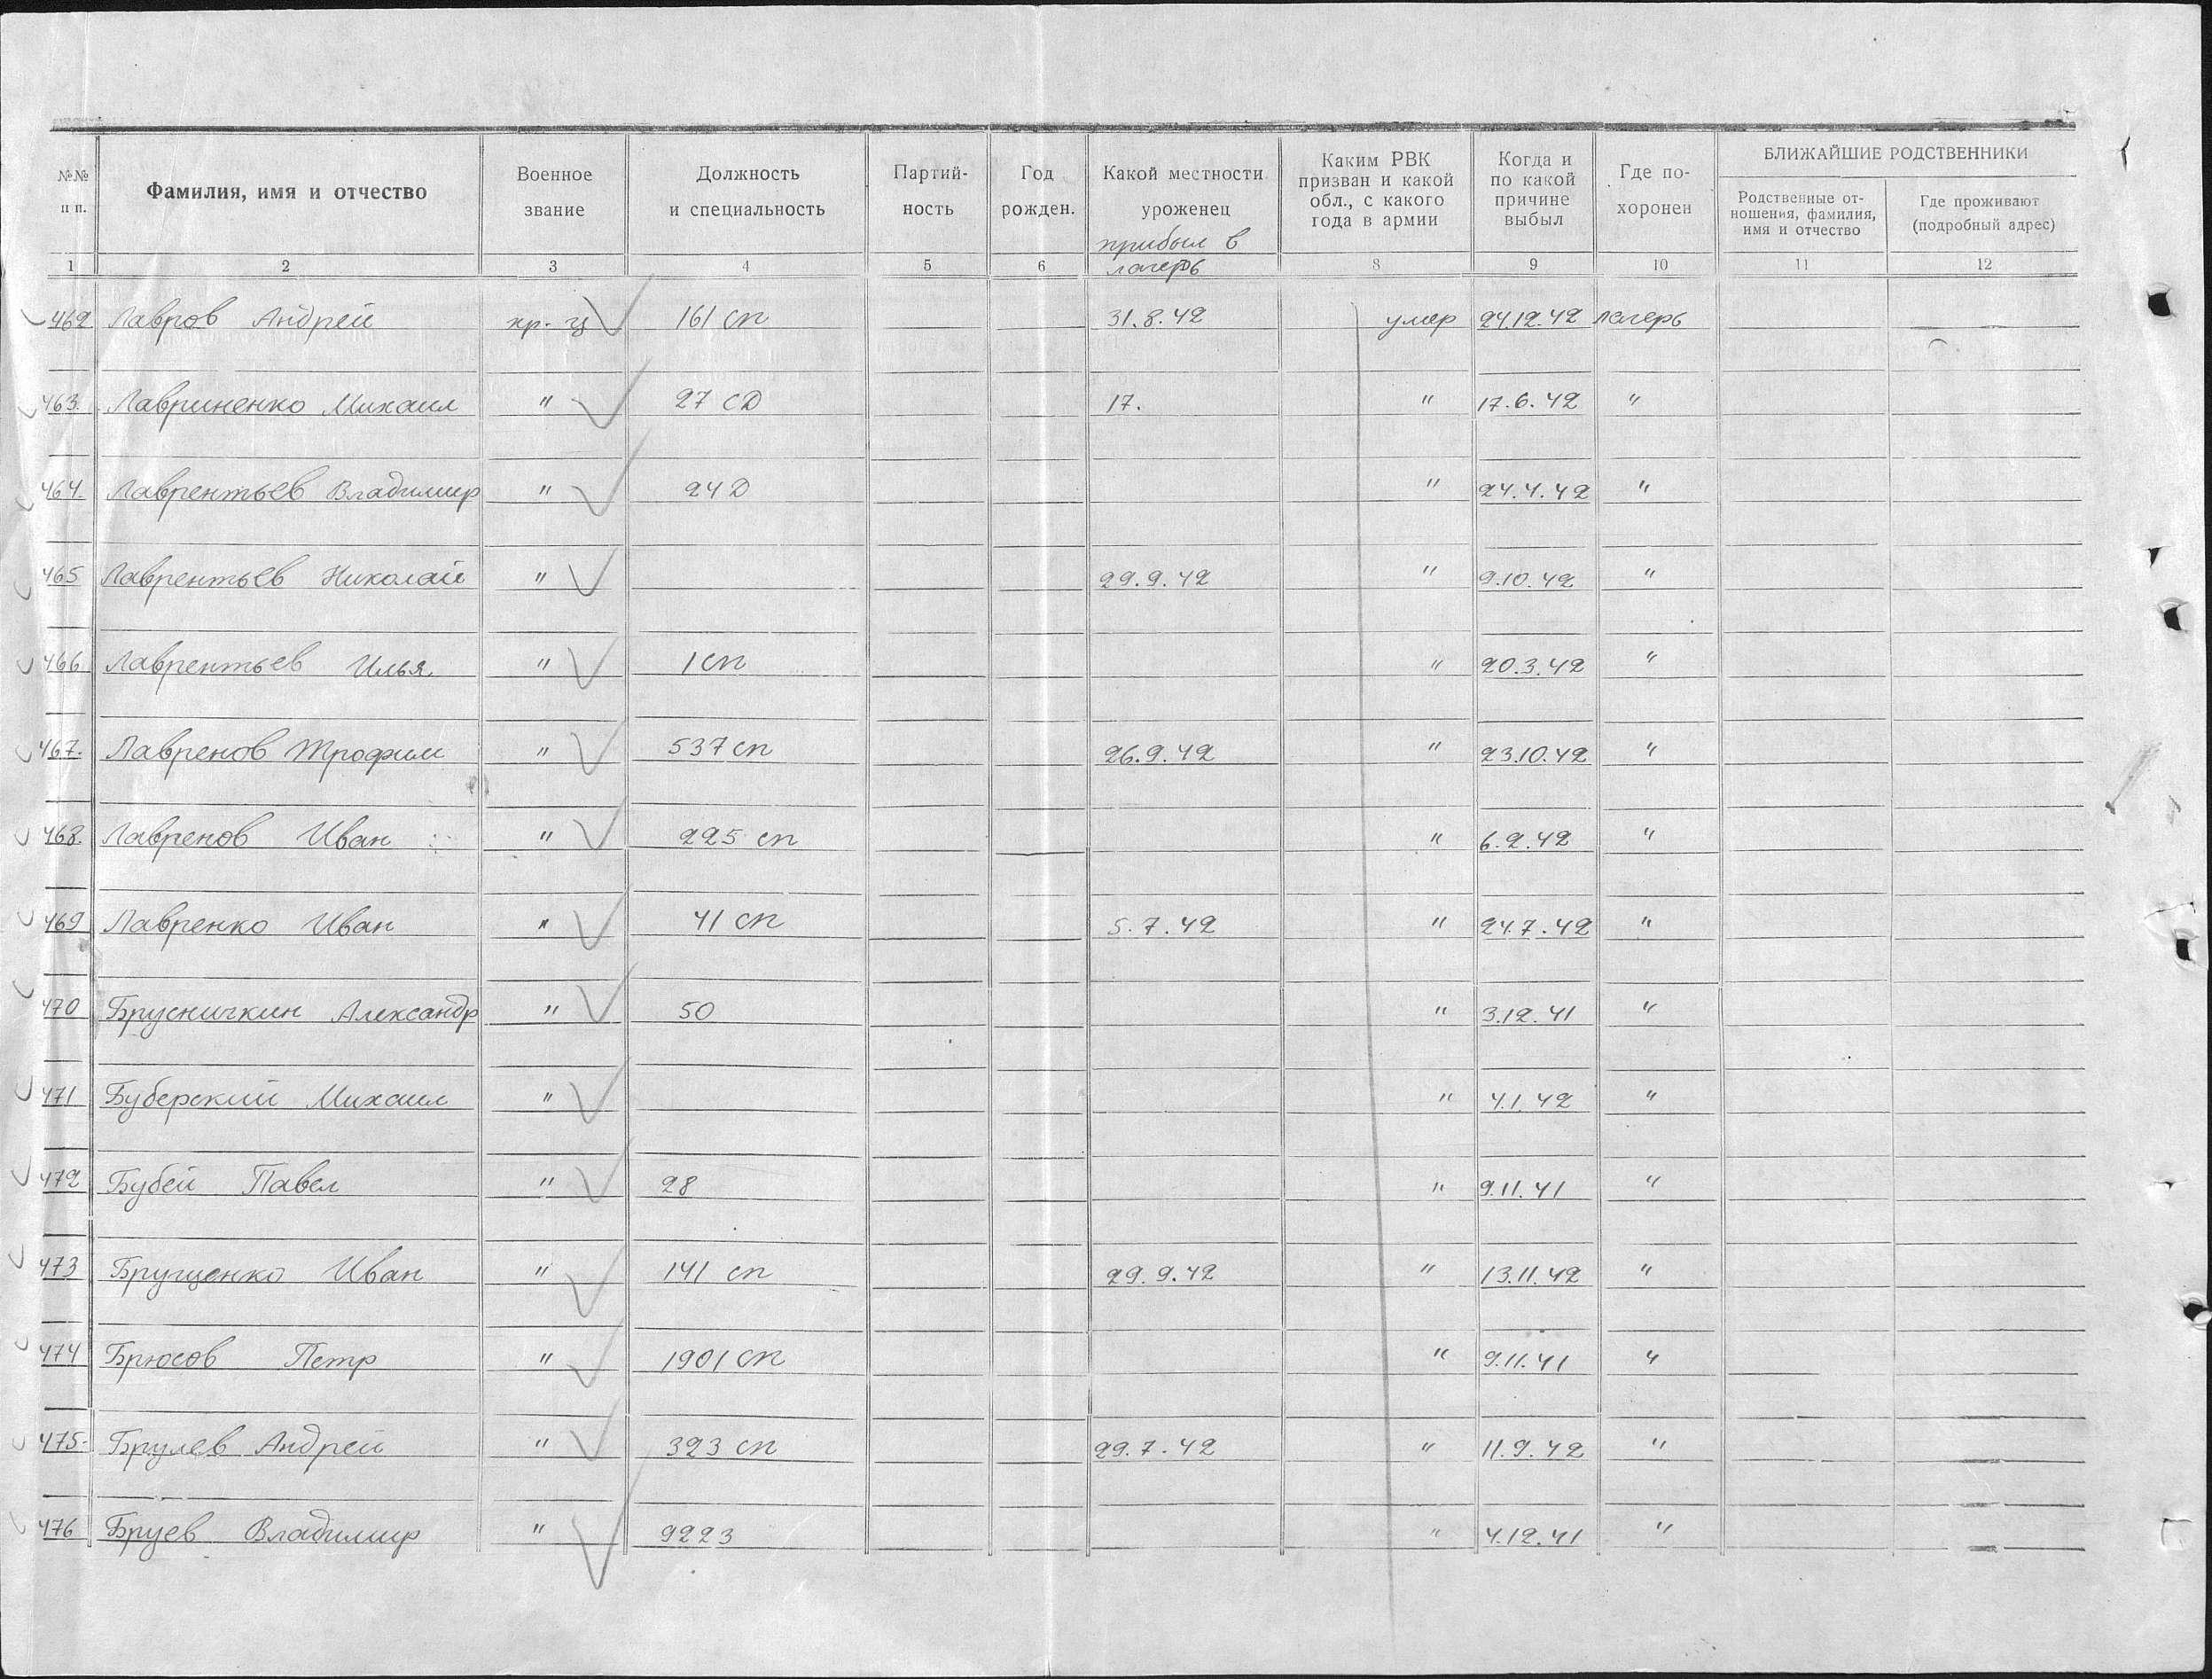 №№ п п. | Фамилия, имя и отчество | Военное звание | Должность и специальность | Партий-ность | Год рожден. | Какой местности уроженец прибыл в лагерь | Каким РВК призван и какой обл., с какого года в армии | Когда и по какой причине выбыл | Где по-хоронен | БЛИЖАЙШИЕ РОДСТВЕННИКИ | Родственные от-ношения, фамилия, имя и отчество | Где проживают (подробный адрес)
1 2 3 4 5 6 8 9 10 11 12
462 Лавров Андрей кр-ц 161 сп 31.8.42 умер 24.12.42 лагерь
463. Лавриненко Михаил " 27 СД 17. " 17.6.42 "
464. Лаврентьев Владимир " 24 Д " 24.4.42 "
465 Лаврентьев Николай " 29.9.42 " 9.10.42 "
466 Лаврентьев Илья. " 1 сп " 20.3.42 "
467. Лавренов Трофим " 537 сп 26.9.42 " 23.10.42 "
468. Лавренов Иван " 225 сп " 6.2.42 "
469 Лавренко Иван " 41 сп 5.7.42 " 24.7.42 "
470 Брусничкин Александр " 50 " 3.12.41 "
471 Буберский Михаил " " 4.1.42 "
472 Бубей Павел " 28 " 9.11.41 "
473 Брущенко Иван " 141 сп 29.9.42 " 13.11.42 "
474 Брюсов Петр " 1901 сп " 9.11.41 "
475- Брулев Андрей " 323 сп 29.7.42 " 11.9.42 "
476 Бруев Владимир " 9223 " 4.12.41 "